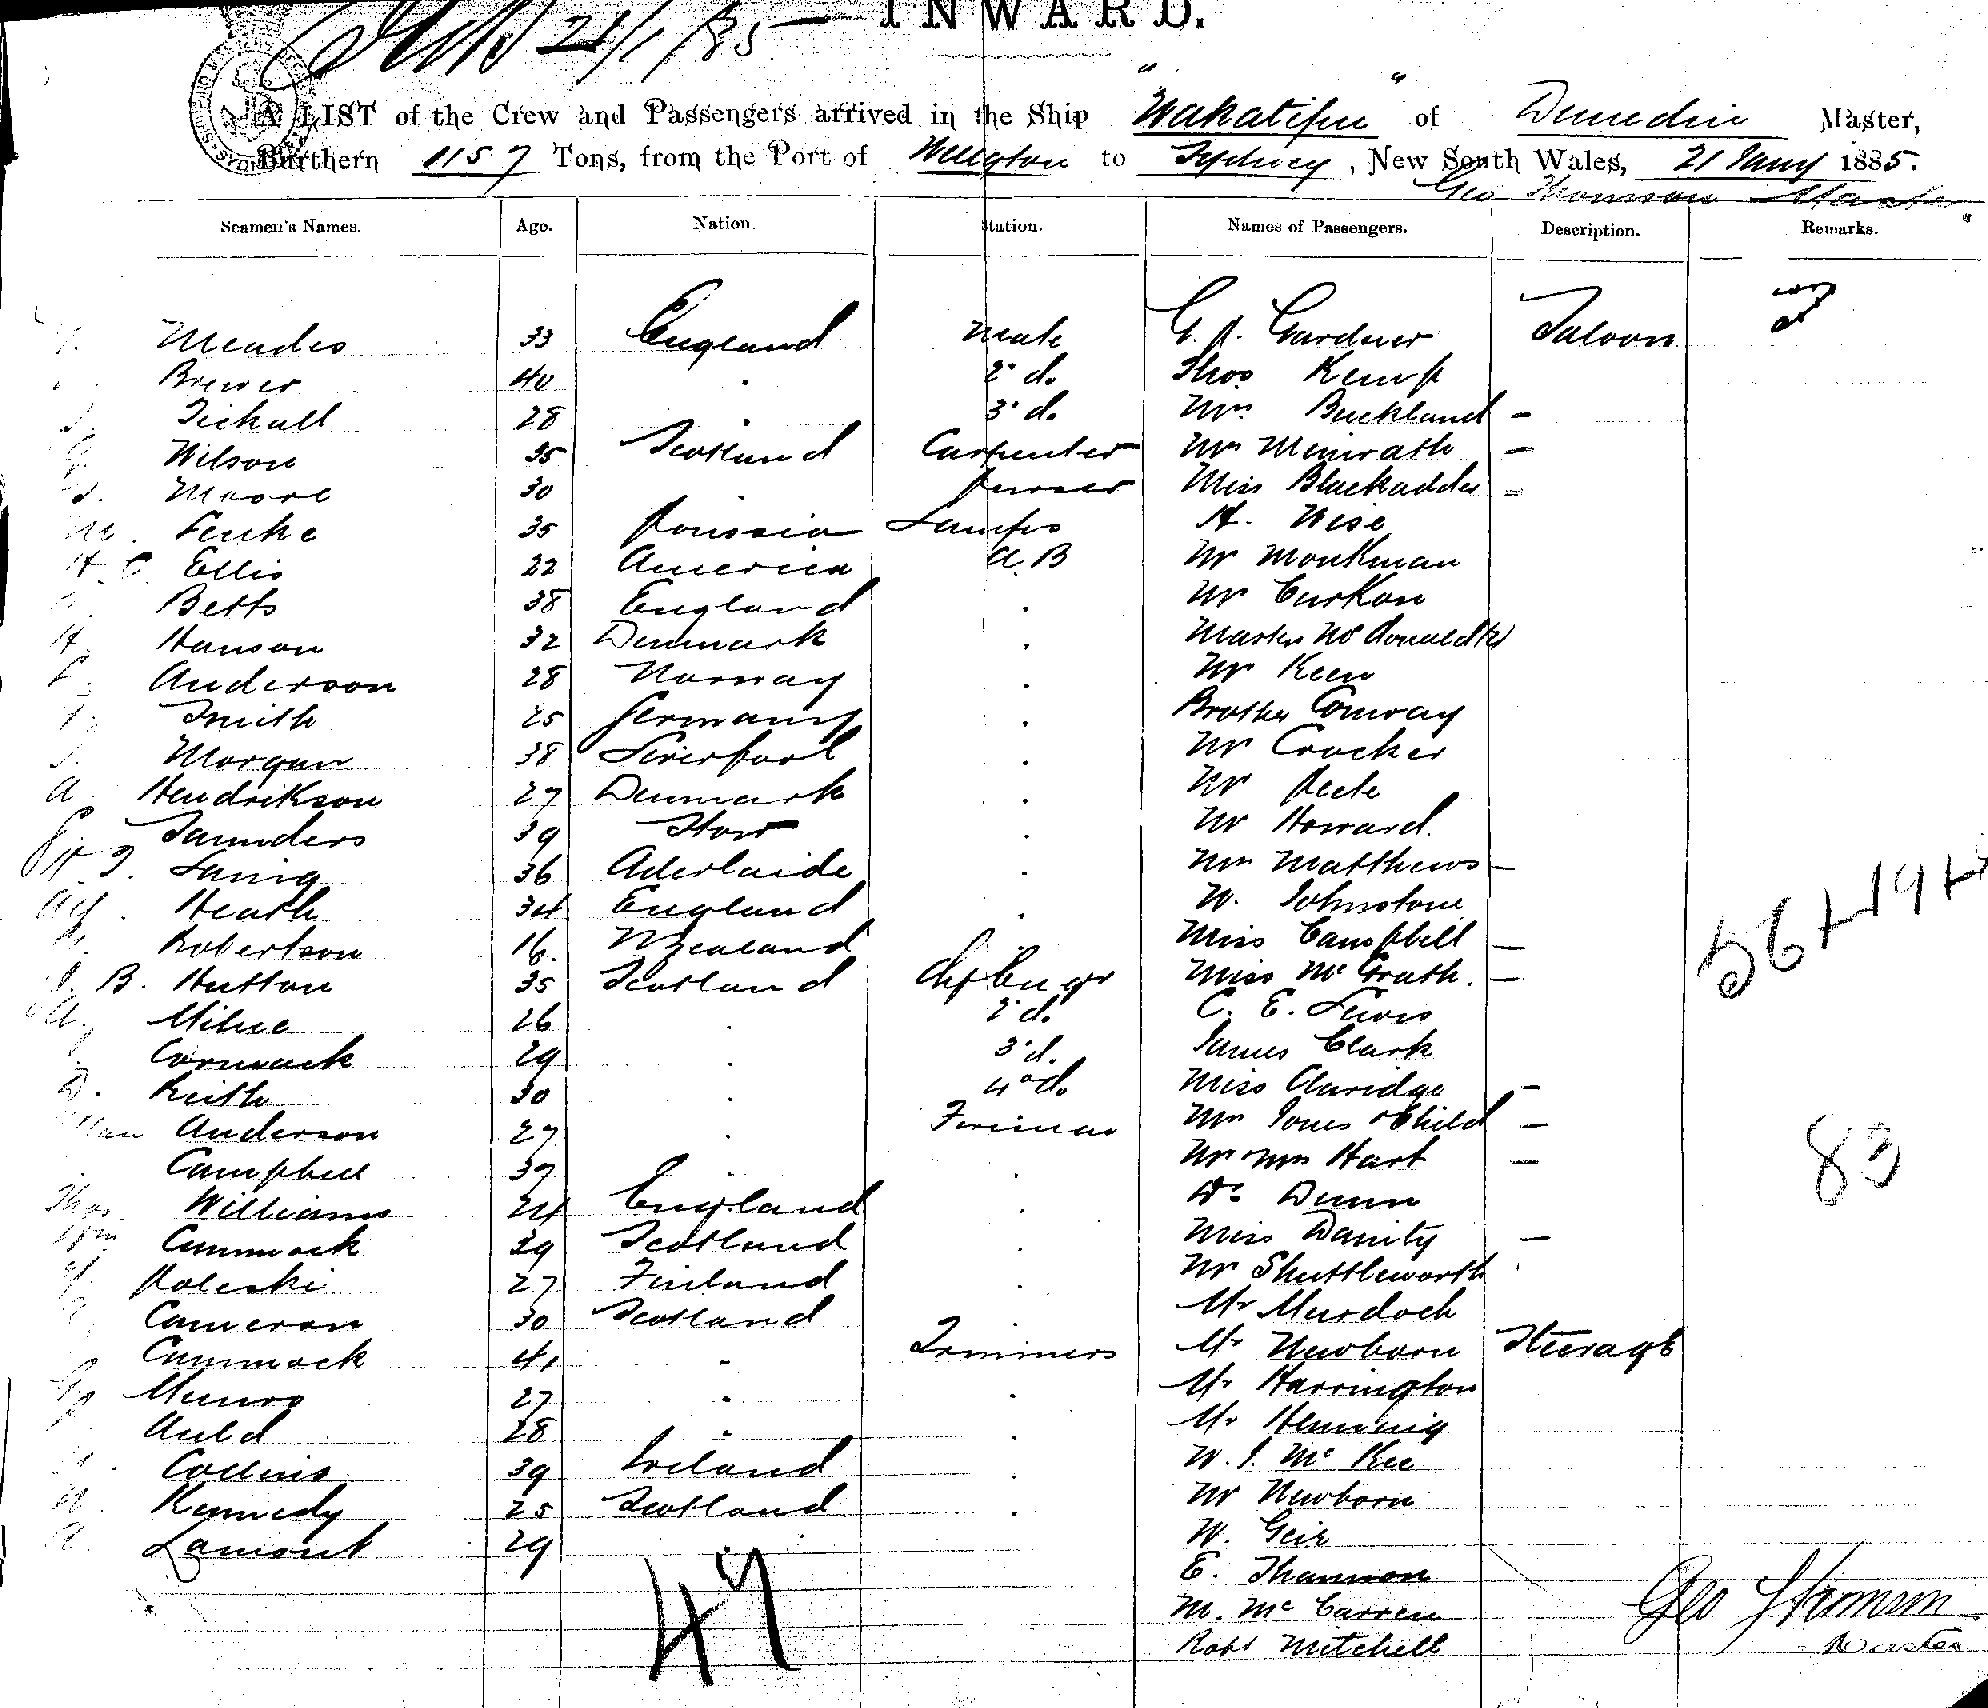 INWARD.
21/1/85
A LIST of the Crew and Passengers arrived in the Ship "Wakatipu" of Dunedin Master,
Burthern 1157 Tons, from the Port of Wellgton to Sydney, New South Wales, 21 Jany 1885.
Geo Thomson Master
Seamen's Names. Age. Nation. Station. Names of Passengers. Description. Remarks.
Meades 33 England Mate G. A. Gardner Saloon
Brewer 40 " 2d do Thos Kemp
Tickall 28 " 3d do Mrs Buckland -
Wilson 35 Scotland Carpenter Mrs Meinrath -
Moore 30 Purser Miss Blackadder -
Fenke 35 Prussia Lamps A. Wise
H. C. Ellis 22 America A.B Mr Monkman
Betts 38 England " Mr Curkan
H. Hanson 32 Denmark " Master McDonald
Anderson 28 Norway " Mr Keen
Smith 25 Germany " Brother Conway
Morgan 38 Liverpool " Mr Crocker
A Hendrikson 27 Denmark " Mr Peete
Saunders 39 " Mr Howard.
Laing 36 Aderlaide " Mrs Matthews -
Heath 34 England " W. Johnstone
Robertson 16. N Zealand " Miss Campbell -
B. Hutton 35 Scotland Chf Engr Miss McGrath. -
Milne 26 " 2d do C. E. Lewis
Cormack 29 " 3d do James Clark
Keith 30 " 4th do Miss Claridge -
Anderson 27 " Fireman Mrs Jones & Child -
Campbell 37 " " Mr & Mrs Hart -
Thos Williams 24 England " Dr Dunn
Wm Cummock 29 Scotland " Miss Danity -
Poleski 27 Finland " Mr Shuttleworth
Cameron 30 Scotland " Mr Murdoch
Cummock 41 " Trimmers Mr Newborn Steerage
Munro 27 " " Mr Harrington
Auld 28 " " Mr Henning
Collins 39 Ireland " W. J. McKee
Kennedy 25 Scotland " Mr Newborn
Lamont 29 " W. Geir
E. Thannon
M. McCarren
Robt Mitchell
56+19+
83
47
Geo Thomson
Master